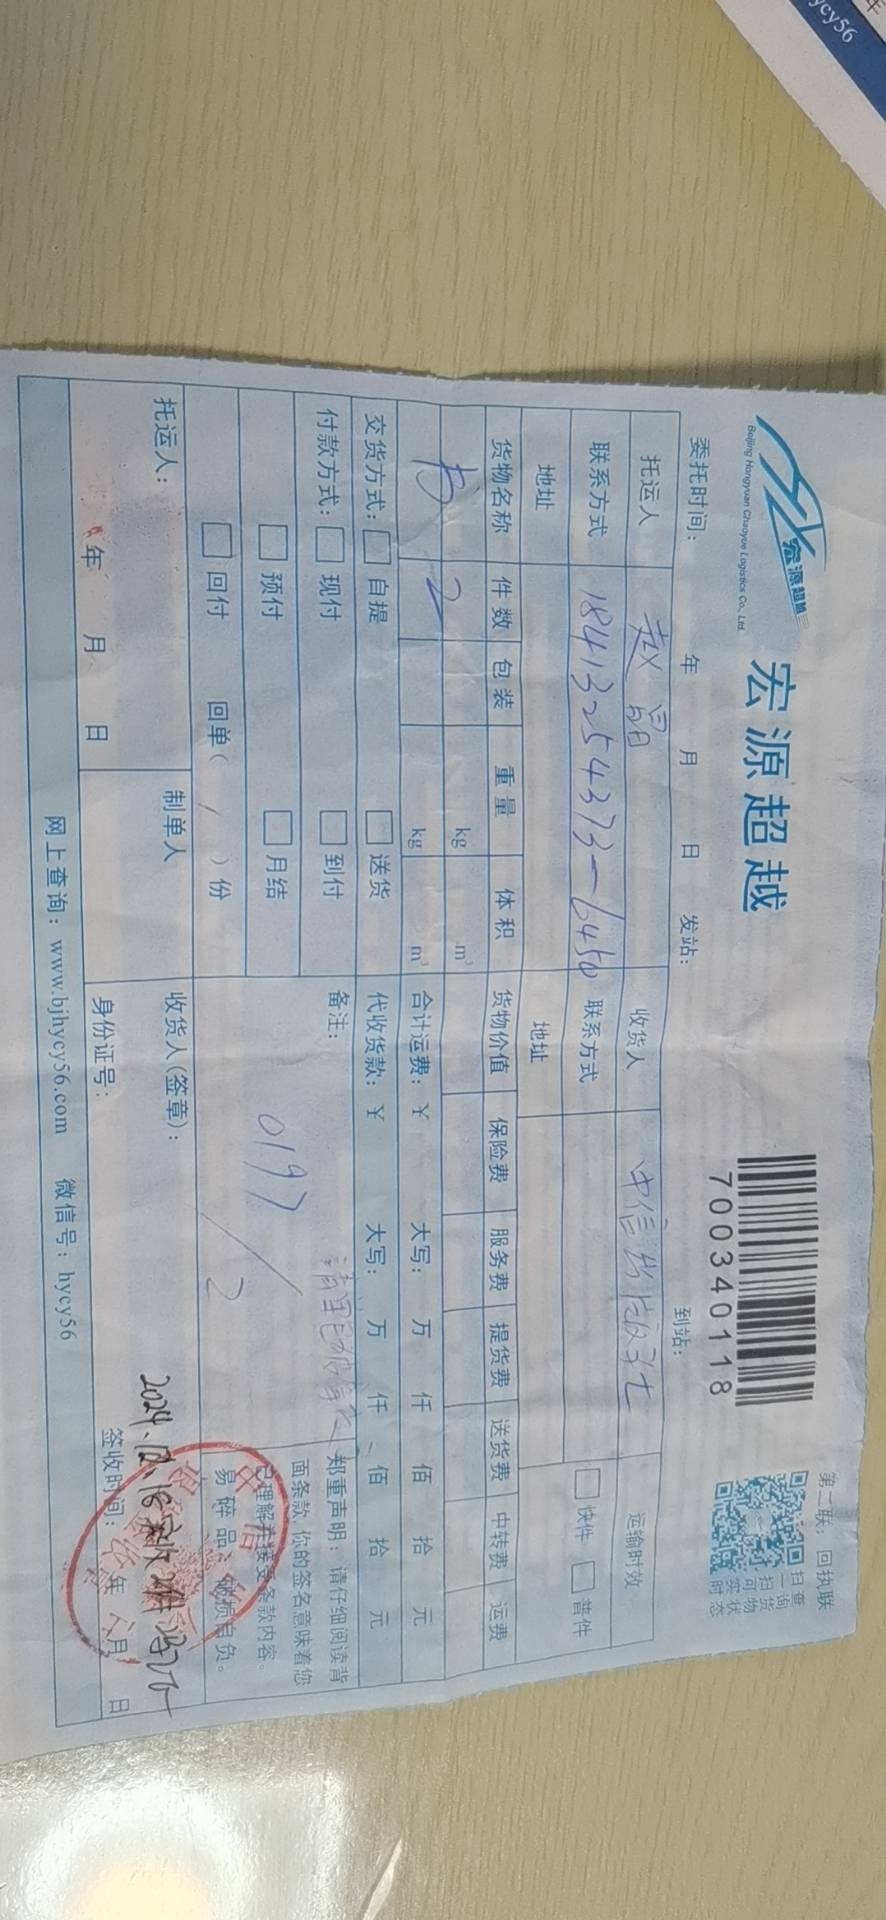 ycy56
宏源超越
Beijing Hongyuan Chaoyue Logistics Co., Ltd.
宏源超越
7000340118
第二联：回执联
扫一扫 查询货物实时状态
委托时间： 年 月 日 发站： 到站：
托运人 赵 收货人 中信出版社 运输时效
联系方式 18413254373-6450 联系方式 快件 普件
地址 地址
货物名称 件数 包装 重量 体积 货物价值 保险费 服务费 提货费 送货费 中转费 运费
书 2 kg m³
kg m³ 合计运费：¥ 大写： 万 仟 佰 拾 元
交货方式： 自提 送货 代收货款：¥ 大写： 万 仟 佰 拾 元
付款方式： 现付 到付 备注：
预付 月结 0197/2
回付 回单（ / ）份
郑重声明：请仔细阅读背
面条款，你的签名意味着您
已理解并接受条款内容。
易碎品、破损自负。
托运人： 制单人 收货人(签章)：
2024.12.16
年 月 日 身份证号： 签收时间： 年 月 日
网上查询：www.bjhycy56.com 微信号：hycy56